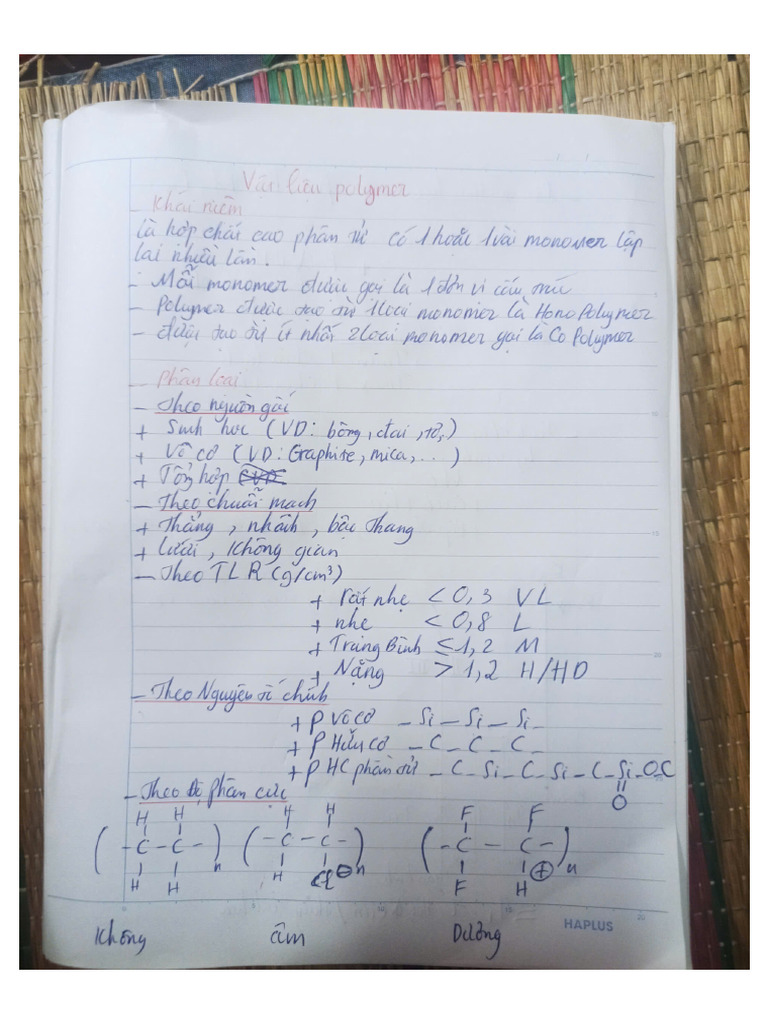 Vật liệu polymer
- Khái niệm
là hợp chất cao phân tử có 1 hoặc 1 vài monomer lặp
lại nhiều lần.
- Mỗi monomer được gọi là 1 đơn vị cấu trúc
- Polymer được tạo từ 1 loại monomer là HomoPolymer
- được tạo từ ít nhất 2 loại monomer gọi là Co Polymer
- Phân loại
- Theo nguồn gốc
+ Sinh học (VD: bông, đai, tơ,)
+ Vô cơ (VD: Graphite, mica, ..)
+ Tổng hợp
- Theo chuỗi mạch
+ Thẳng, nhánh, bậc thang
+ Lưới, không gian
- Theo TLR (g/cm³)
+ rất nhẹ < 0,3 VL
+ nhẹ < 0,8 L
+ Trung Bình ≤ 1,2 M
+ Nặng > 1,2 H/HD
- Theo Nguyên tố chính
+ P Vô cơ - Si - Si - Si -
+ P Hữu cơ - C - C - C -
+ P HC phân tử - C - Si - C - Si - C - Si - O - C
O
- Theo độ phân cực
H H H H F F
( - C - C - )n ( - C - C - )n ( - C - C - )n
H H H Cl ⊖ F H ⊕
HAPLUS
Không âm Dương